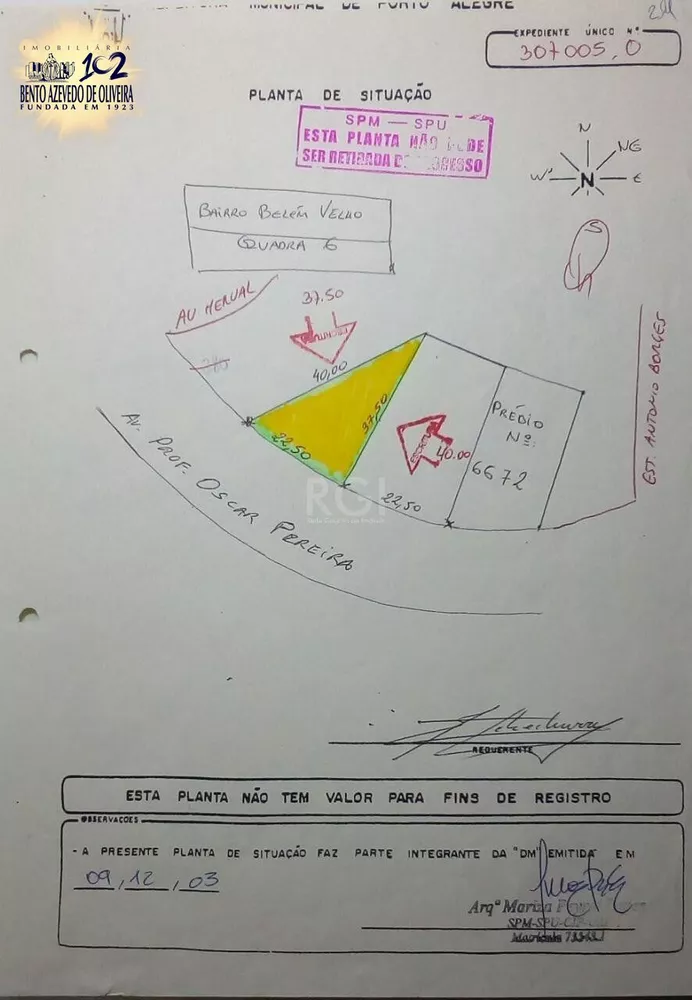 MUNICIPAL DE PORTO ALEGRE
IMOBILIÁRIA
102
BENTO AZEVEDO DE OLIVEIRA
FUNDADA EM 1923
EXPEDIENTE ÚNICO Nº
307005.0
PLANTA DE SITUAÇÃO
SPM — SPU
ESTA PLANTA NÃO
SER RETIRADA
N
NE
W
N
E
S
BAIRRO BELÉM VELHO
QUADRA 6
AV HERVAL
37.50
40,00
22,50
37,50
ESCRITURA
40.00
22,50
PRÉDIO
Nº:
6672
EST. ANTONIO BORGES
AV. PROF. OSCAR PEREIRA
RGI
REQUERENTE
ESTA PLANTA NÃO TEM VALOR PARA FINS DE REGISTRO
OBSERVAÇÕES
- A PRESENTE PLANTA DE SITUAÇÃO FAZ PARTE INTEGRANTE DA "DM" EMITIDA EM
09, 12, 03
Arqª Mariza